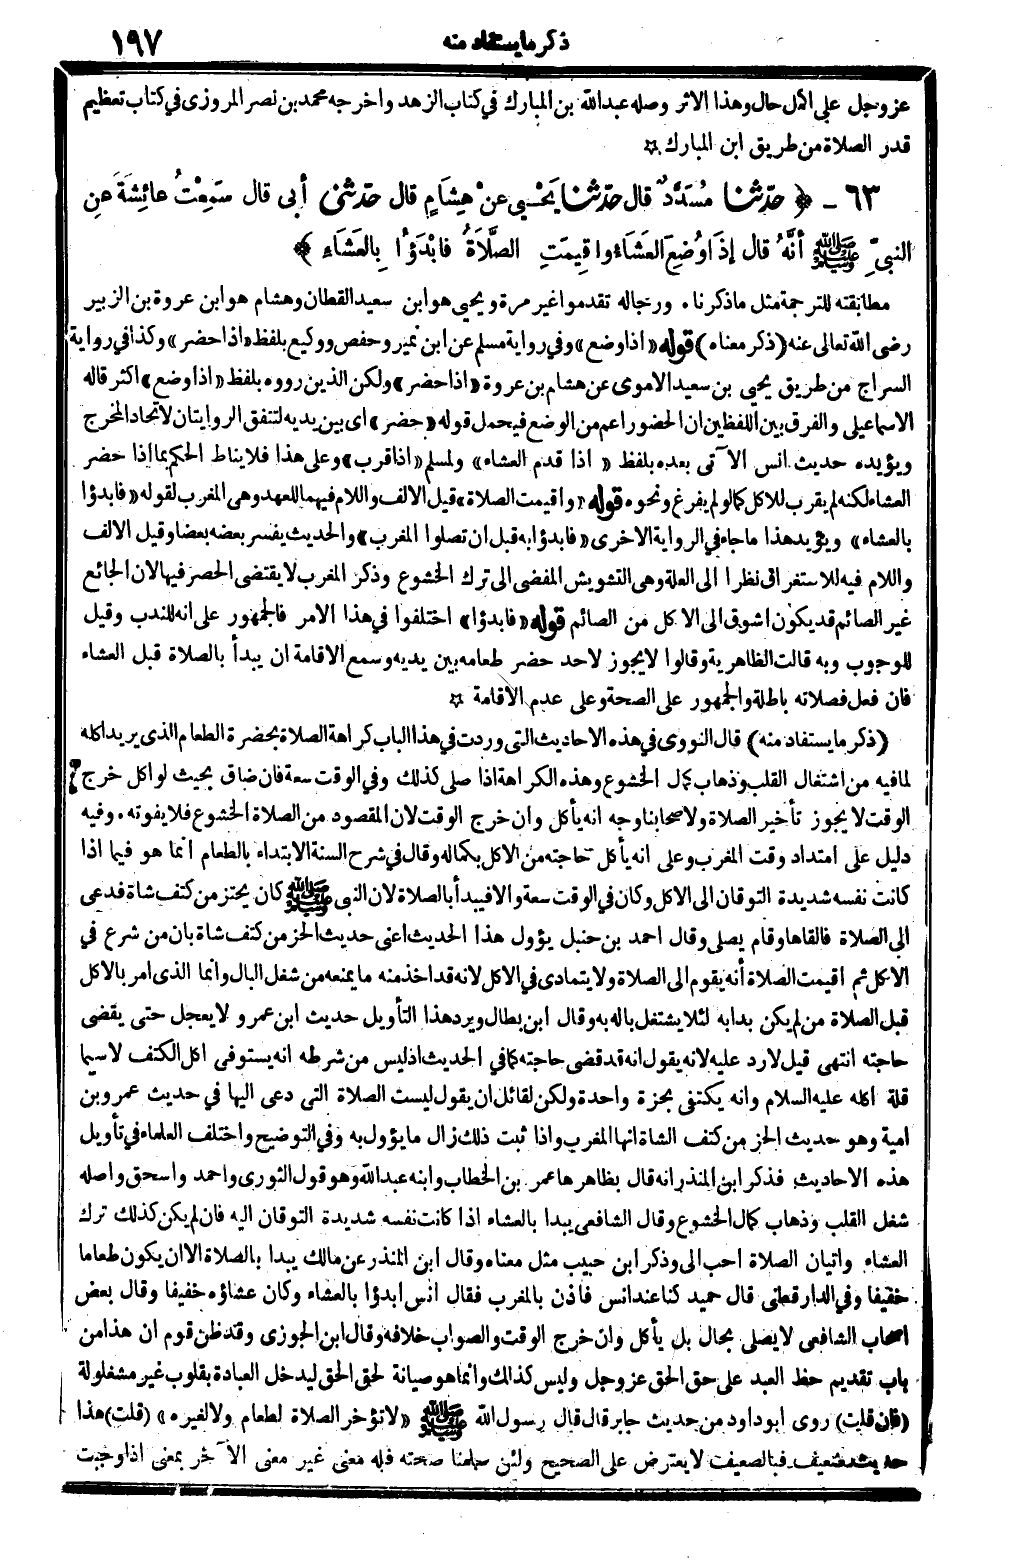 ذكر ما يستفاد منه ١٩٧
عز وجل على الأكل حال وهذا الاثر وصله عبد الله بن المبارك في كتاب الزهد واخرجه محمد بن نصر المروزى في كتاب تعظيم
قدر الصلاة من طريق ابن المبارك ☆
٦٣ - ﴿ حَدَّثنا مُسَدَّدٌ قال حَدَّثنا يَحْيى عنْ هِشَامٍ قال حَدَّثَنى أبى قال سَمِعْتُ عائِشَةَ عنِ
النبيِّ ﷺ أنَّهُ قال إذَا وُضِعَ العَشَاءُ وا قِيمَتِ الصَّلاَةُ فابْدَؤُا بِالعَشَاءِ ﴾
مطابقته للترجمة مثل ما ذكرنا. ورجاله تقدموا غير مرة ويحيى هو ابن سعيد القطان وهشام هو ابن عروة بن الزبير
رضى الله تعالى عنه (ذكر معناه) قوله «اذا وضع» وفي رواية مسلم عن ابن نمير وحفص ووكيع بلفظ «اذا حضر» وكذا في رواية
السراج من طريق يحيى بن سعيد الاموى عن هشام بن عروة «اذا حضر» ولكن الذين رووه بلفظ «اذا وضع» اكثر قاله
الاسماعيلى والفرق بين اللفظين ان الحضور اعم من الوضع فيحمل قوله «حضر» اى بين يديه لتتفق الروايتان لاتحاد المخرج
ويؤيده حديث انس الآتى بعده بلفظ « اذا قدم العشاء» ولمسلم «اذا قرب» وعلى هذا فلا يناط الحكم بما اذا حضر
العشاء لكنه لم يقرب للاكل كما لو لم يفرغ ونحوه قوله «وا قيمت الصلاة» قيل الالف واللام فيهما للعهد وهى المغرب لقوله «فابدؤا
بالعشاء» ويؤيد هذا ما جاء في الرواية الاخرى «فابدؤا به قبل ان تصلوا المغرب» والحديث يفسر بعضه بعضا وقيل الالف
واللام فيه للاستغراق نظرا الى العلة وهى التشويش المفضى الى ترك الخشوع وذكر المغرب لا يقتضى الحصر فيها لان الجائع
غير الصائم قد يكون اشوق الى الاكل من الصائم قوله «فابدؤا» اختلفوا في هذا الامر فالجمهور على انه للندب وقيل
للوجوب وبه قالت الظاهرية وقالوا لا يجوز لاحد حضر طعامه بين يديه وسمع الاقامة ان يبدأ بالصلاة قبل العشاء
فان فعل فصلاته باطلة والجمهور على الصحة وعلى عدم الاقامة ☆
(ذكر ما يستفاد منه) قال النووى في هذه الاحاديث التى وردت في هذا الباب كراهة الصلاة بحضرة الطعام الذى يريد اكله
لما فيه من اشتغال القلب وذهاب كمال الخشوع وهذه الكراهة اذا صلى كذلك وفي الوقت سعة فان ضاق بحيث لو اكل خرج
الوقت لا يجوز تأخير الصلاة ولاصحابنا وجه انه يأكل وان خرج الوقت لان المقصود من الصلاة الخشوع فلا يفوته. وفيه
دليل على امتداد وقت المغرب وعلى انه يأكل حاجته من الاكل بكماله وقال في شرح السنة الابتداء بالطعام انما هو فيما اذا
كانت نفسه شديدة التوقان الى الاكل وكان في الوقت سعة والا فيبدأ بالصلاة لان النبى ﷺ كان يحتز من كتف شاة فدعى
الى الصلاة فالقاها وقام يصلى وقال احمد بن حنبل يؤول هذا الحديث اعنى حديث الحز من كتف شاة بان من شرع في
الاكل ثم اقيمت الصلاة أنه يقوم الى الصلاة ولا يتمادى في الاكل لانه قد اخذ منه ما يمنعه من شغل البال وانما الذى امر بالاكل
قبل الصلاة من لم يكن بدا به لئلا يشتغل باله به وقال ابن بطال ويرد هذا التأويل حديث ابن عمر و لا يعجل حتى يقضى
حاجته انتهى قيل لا رد عليه لانه يقول انه قد قضى حاجته كما في الحديث اذ ليس من شرطه انه يستوفى اكل الكتف لاسيما
قلة اكله عليه السلام وانه يكتفى بحزة واحدة ولكن لقائل ان يقول ليست الصلاة التى دعى اليها في حديث عمرو بن
امية وهو حديث الحز من كتف الشاة انها المغرب واذا ثبت ذلك زال ما يؤول به وفي التوضيح واختلف العلماء في تأويل
هذه الاحاديث فذكر ابن المنذر انه قال بظاهرها عمر بن الخطاب وابنه عبد الله وهو قول الثورى واحمد واسحق واصله
شغل القلب وذهاب كمال الخشوع وقال الشافعى يبدا بالعشاء اذا كانت نفسه شديدة التوقان اليه فان لم يكن كذلك ترك
العشاء واتيان الصلاة احب الى وذكر ابن حبيب مثل معناه وقال ابن المنذر عن مالك يبدا بالصلاة الا ان يكون طعاما
خفيفا وفي الدارقطنى قال حميد كنا عند انس فاذن بالمغرب فقال انس ابدؤا بالعشاء وكان عشاؤه خفيفا وقال بعض
اصحاب الشافعى لا يصلى بحال بل يأكل وان خرج الوقت والصواب خلافه وقال ابن الجوزى وقد ظن قوم ان هذا من
باب تقديم حظ العبد على حق الحق عز وجل وليس كذلك وانما هو صيانة لحق الحق ليدخل العبادة بقلوب غير مشغولة
(فان قلت) روى ابو داود من حديث جابر قال قال رسول الله ﷺ «لا تؤخر الصلاة لطعام ولا لغيره» (قلت) هذا
حديث ضعيف فبالضعيف لا يعترض على الصحيح ولئن سلمنا صحته فله معنى غير معنى الآخر بمعنى اذا وجبت